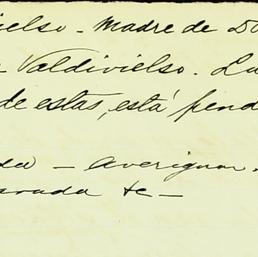 ielso - Madre de Do
- Valdivielso. La
de estas, está pend
da - Averiguar
te -